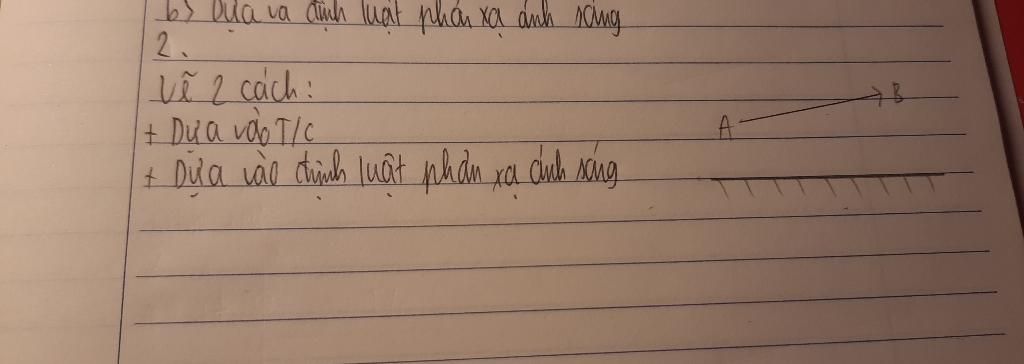 b) Dựa và định luật phản xạ ánh sáng
2.
Vẽ 2 cách:
+ Dựa vào T/C
+ Dựa vào định luật phản xạ ánh sáng
A
B